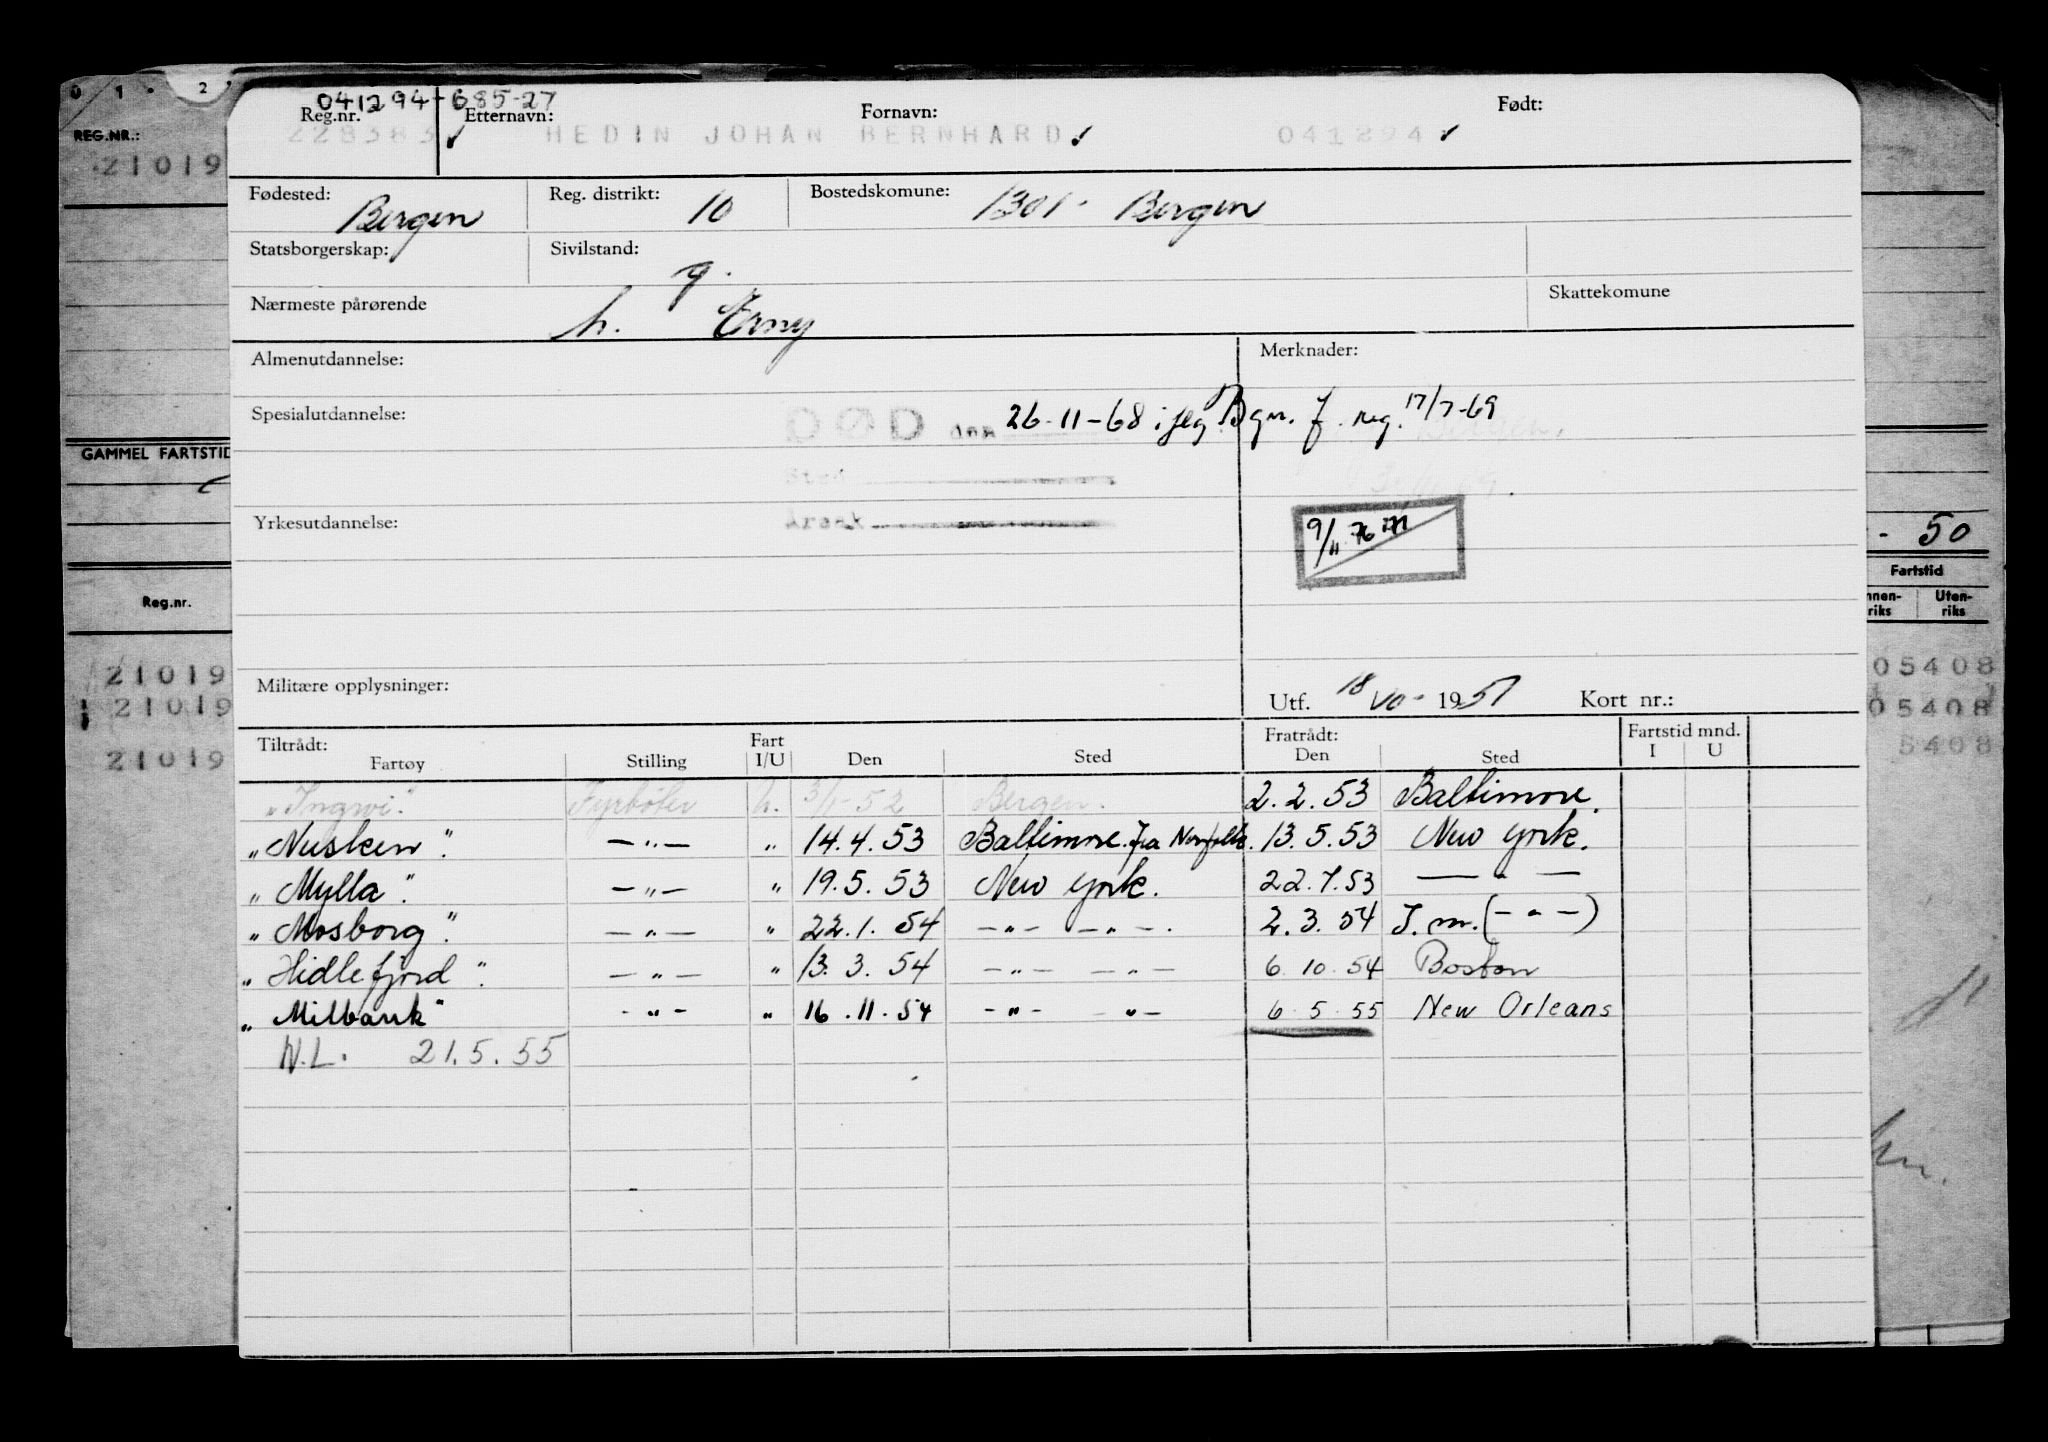 0 1 2
041294-685-27
REG.NR.: Reg.nr. Etternavn: Fornavn: Født:
21019 228383 HEDIN JOHAN BERNHARD 041294
Fødested: Bergen Reg. distrikt: 10 Bostedskomune: 1301 - Bergen
Statsborgerskap: Sivilstand: g.
Nærmeste pårørende h. Erny Skattekomune
Almenutdannelse: Merknader:
Spesialutdannelse: DØD den 26-11-68 i flg. Bgn. f. reg. 17/7-69
GAMMEL FARTSTID Sted
Yrkesutdannelse: Årsak 9/11-76 - 50
Fartstid
Reg.nr. Innen-riks Uten-riks
21019 Militære opplysninger: 05408
21019 Utf. 18/VII- 1951 Kort nr.: 05408
Tiltrådt: Fart Fratrådt: Fartstid mnd.
21019 Fartøy Stilling I/U Den Sted Den Sted I U 5408
"Ingwi". Fyrbøter h. 3/1-52 Bergen. 2.2.53 Baltimore.
"Nusken". —"— " 14.4.53 Baltimore. fra Norfolk. 13.5.53 New York.
"Mylla". —"— " 19.5.53 New York. 22.7.53 — " —
"Mosborg". —"— " 22.1.54 —"— —"—. 2.3.54 I.m. (—"—)
"Hidlefjord". —"— " 13.3.54 —"— —"— 6.10.54 Boston
"Milbank" -"- " 16.11.54 -"- -"- 6.5.55 New Orleans
N.L. 21.5.55